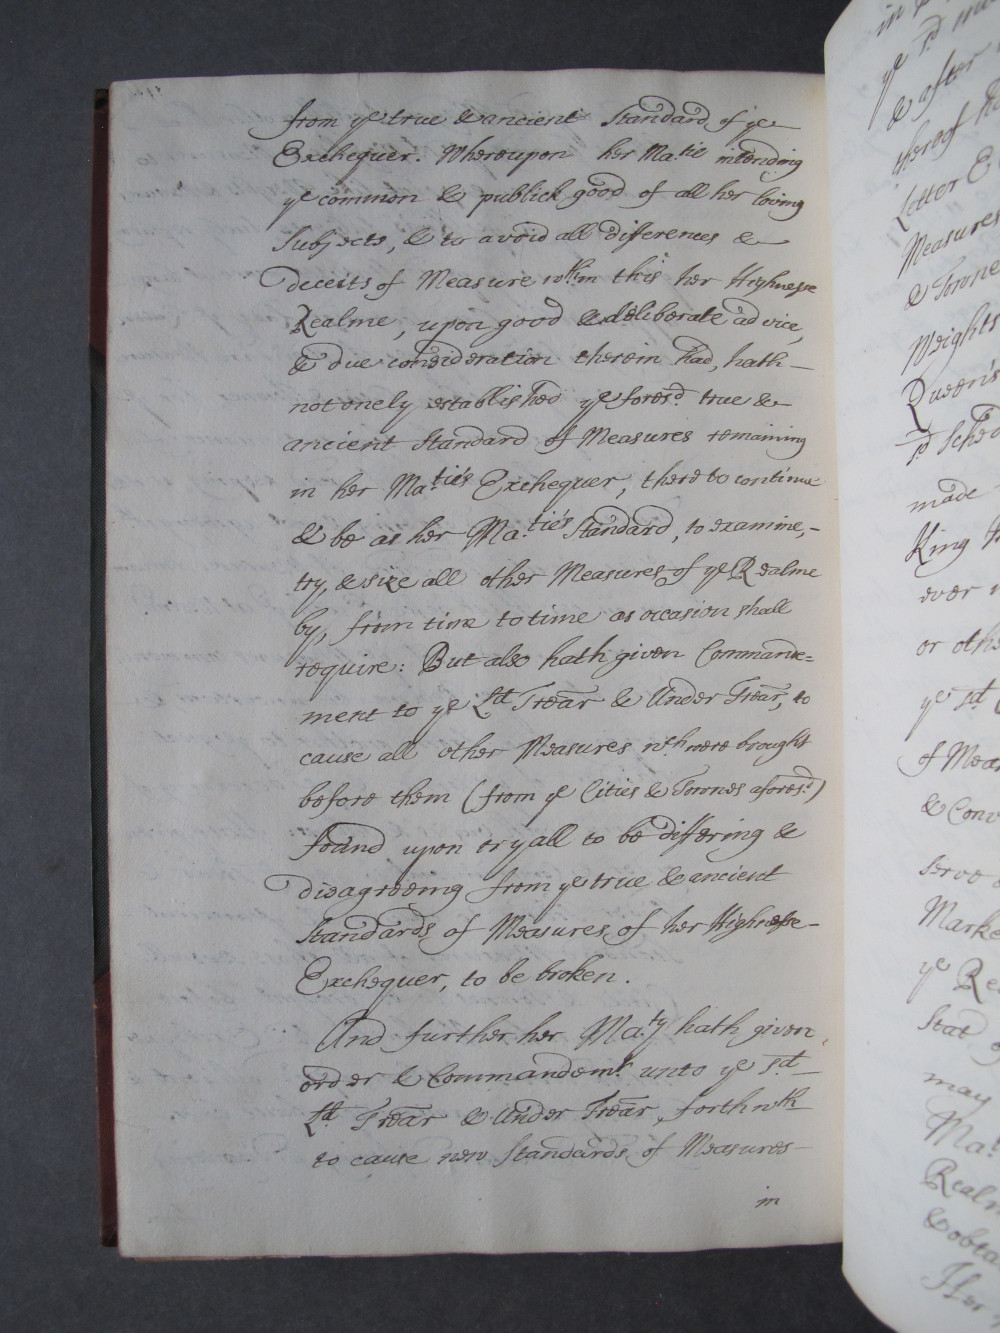 from ye true & ancient Standard of ye
Exchequer. Whereupon her Ma.tie intending
ye common & publick good of all her loving
Subjects, & to avoid all differences &
deceits of Measure wthin this her Highnesse
Realme, upon good & deliberate advice,
& due consideration therein had, hath
not onely established ye foresd. true &
ancient Standard of Measures remaining
in her Ma.tie's Exchequer, there to continue
& be as her Ma.tie's Standard, to examine,
try, & size all other Measures of ye Realme
by, from time to time as occasion shall
require: But also hath given Commande=
ment to ye Ld. Trear & Under Trear, to
cause all other Measures wch were brought
before them (from ye Cities & Townes aforesd.)
found upon tryall to be differing &
disagreeing from ye true & ancient
Standards of Measures of her Highnesse
Exchequer, to be broken.
And further her Ma.ty hath given
order & Commandemt unto ye sd.
Ld. Trear & Under Trear, forthwth
to cause new Standards of Measures
in
in
ye sd
& after
thereof
Letter E
Measures
& Towne
Weights
Queen's
sd Sched
made
King
ever
or oth
ye sd.
of Mea
& Conv
serve
Marke
ye Re
Stat
may
Ma.
Realm
& obta
Her